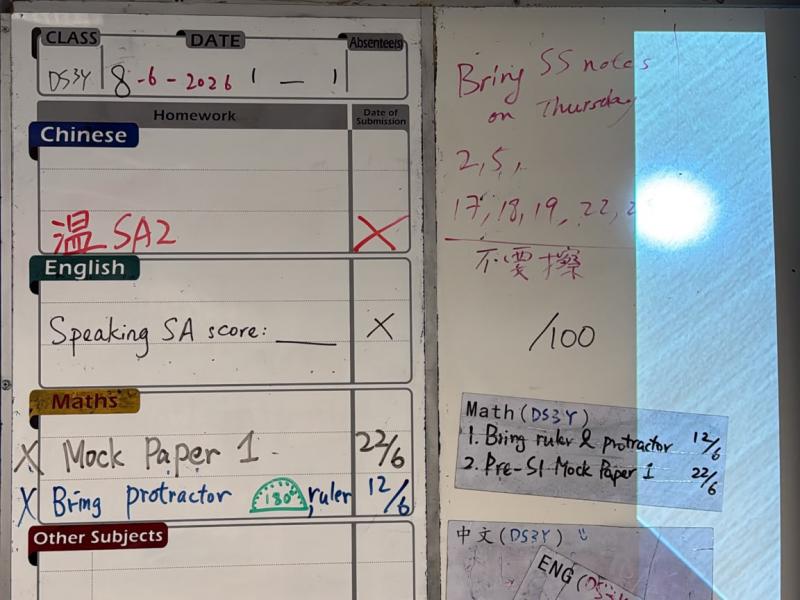 CLASS DATE Absentees
DS3Y 8-6-2026 1 — 1
Homework Date of Submission
Chinese
温 SA2 X
English
Speaking SA score: ____ X
Maths
X Mock Paper 1 22/6
X Bring protractor 180° , ruler 12/6
Other Subjects
Bring SS notes
on Thursday
2, 5,
17, 18, 19, 22,
不要擦
/100
Math (DS3Y)
1. Bring ruler & protractor 12/6
2. Pre-S1 Mock Paper 1 22/6
中文 (DS3Y)
ENG (DS3Y